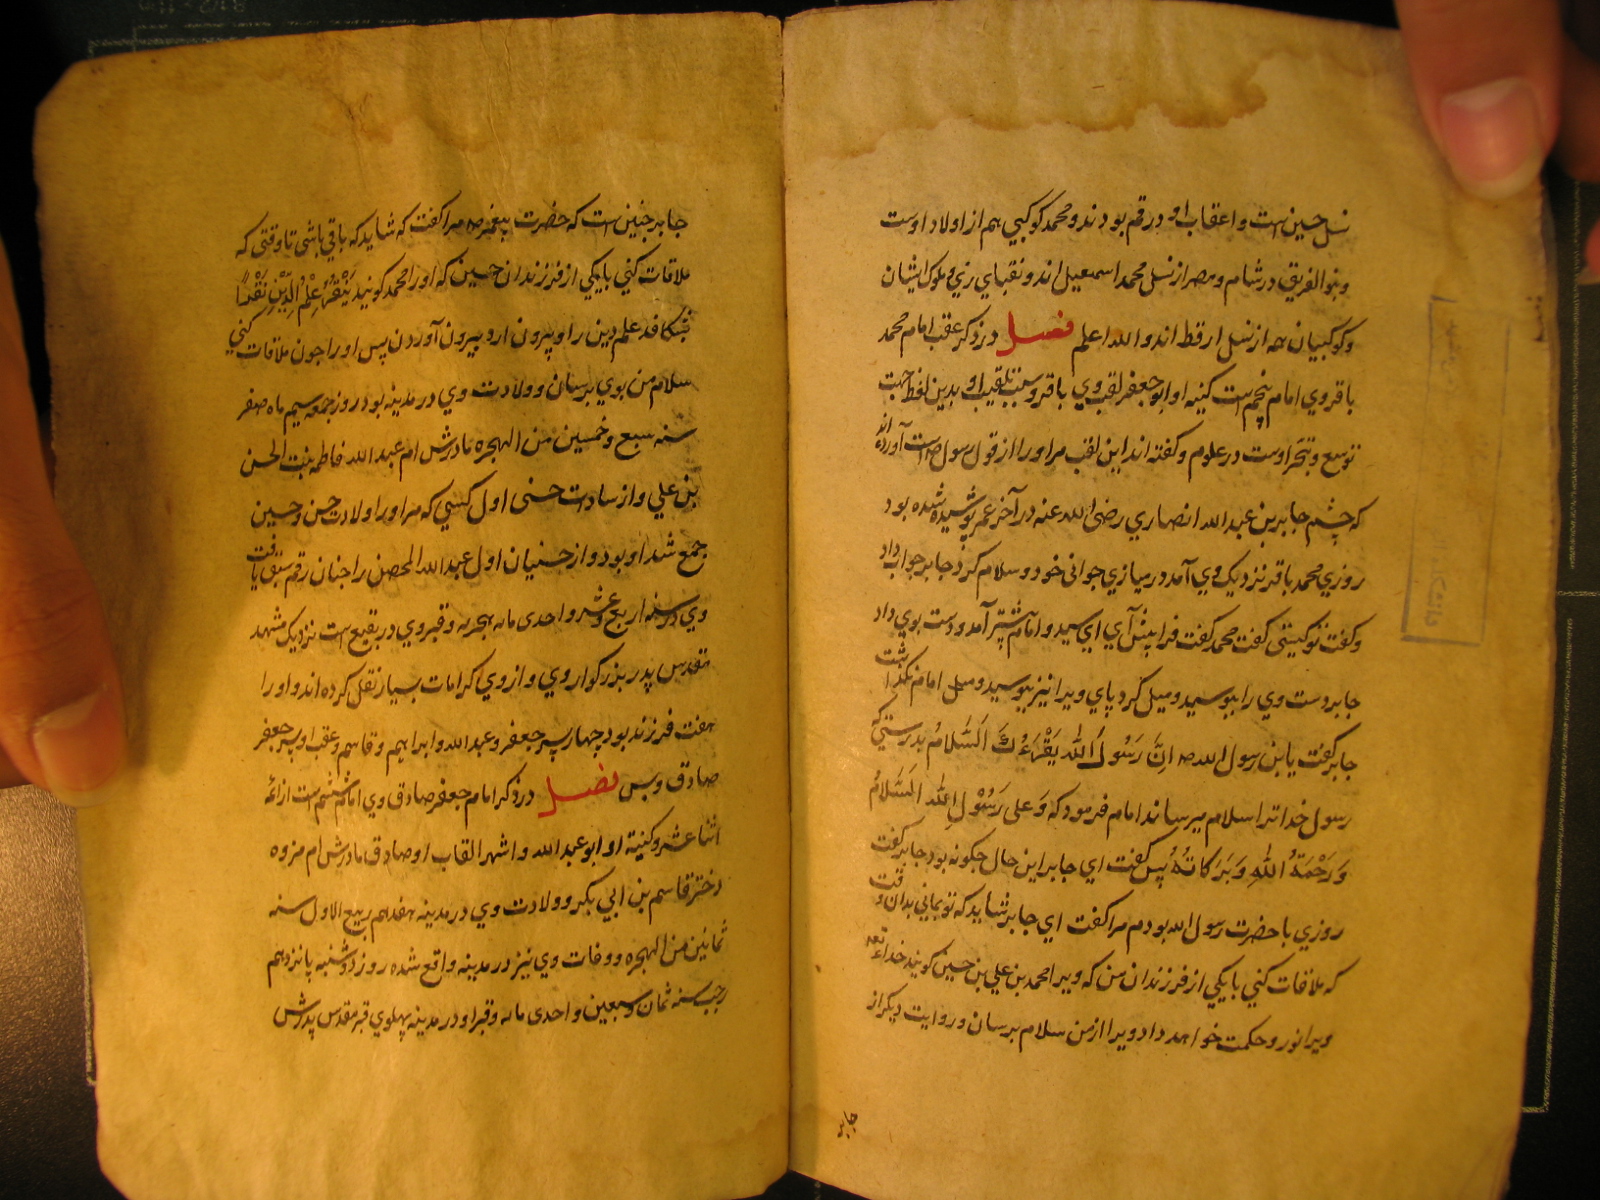 نسل حسین است و اعقاب او در قم بودند و محمد کوکبی هم از اولاد اوست
و بنو الفریق در شام و مصر از نسل محمد اسمعیل اند و نقبای ری و ملوک ایشان
و کوکبیان همه از نسل ارقط اند و الله اعلم فصل در ذکر عقب امام محمد
باقر وی امام پنجم است کنیه او ابو جعفر لقب وی باقر و سبب تلقیب او بدین لفظ جهت
توسع و تبحر اوست در علوم و گفته اند این لقب مر او را از قول رسول ص است آورده اند
که چشم جابر بن عبد الله انصاری رضی الله عنه در آخر عمر پوشیده شده بود
روزی محمد باقر نزدیک وی آمد در میازی جوانی خود و سلام کرد جابر جواب داد
و گفت تو کیستی گفت محمد گفت فرا پیش آی ای سید و امام پیشتر آمد و دست بوی داد
جابر دست وی را ببوسید و میل کرد پای ویرا نیز ببوسید و میل امام نگذاشت
جابر گفت یا بن رسول الله ص اِنَّ رَسُولَ اللّٰه یَقْرَءُکَ اَلسَّلامُ بدرستی که
رسول خدا ترا سلام میرساند امام فرمود که وَ عَلی رَسُوْلِ اللّٰه اَلسَّلامُ
وَ رَحْمَةُ اللّٰهِ وَ بَرَکاتُهُ پس گفت ای جابر این حال چگونه بود جابر گفت
روزی با حضرت رسول الله بودم مرا گفت ای جابر شاید که تو بمانی بدان وقت
که ملاقات کنی با یکی از فرزندان من که ویرا محمد بن علی بن حسین گویند خداء تعه
ویرا نور و حکمت خواهد داد ویرا از من سلام برسان و روایت دیگر از
جابر
جابر چنین است که حضرت پیغمبر ص مرا گفت که شاید که باقی باشی تا وقتی که
ملاقات کنی با یکی از فرزندان حسین که او را محمد گویند یَبْقَرُ عِلْمَ الدِّیْنِ بَقْرًا
بشکافد علم دین را و بیرون ارد بیرون آوردن پس او را چون ملاقات کنی
سلام من بوی برسان و ولادت وی در مدینه بود روز جمعه سیم ماه صفر
سنه سبع و خمسین من الهجره مادرش ام عبد الله فاطمه بنت الحسن
بن علی و از سادات حسنی اول کسی که مر او را ولادت حسن و حسین
جمع شد او بود و از حسنیان اول عبد الله المحض را چنان رقم سبق یافت
وی در سنه اربع عشر و احدی مایه بهجریه و قبر وی در بقیع است نزدیک مشهد
مقدس پدر بزرگوار وی و از وی کرامات بسیار نقل کرده اند و او را
هفت فرزند بود چهار پسر جعفر و عبد الله و ابراهیم و قاسم و عقب او پسر جعفر
صادق و بس فصل در ذکر امام جعفر صادق وی امام ششم است از ائمه
اثنا عشر و کنیة او ابو عبد الله و اشهر القاب او صادق مادرش ام مزوه
دختر قاسم بن ابی بکر و ولادت وی در مدینه هفدهم ربیع الاول سنه
ثمانین من الهجره و وفات وی نیز در مدینه واقع شده روز دوشنبه پانزدهم
رجب سنه ثمان و سبعین و احدی مایه و قبر او در مدینه پهلوی قبر مقدس پدرش